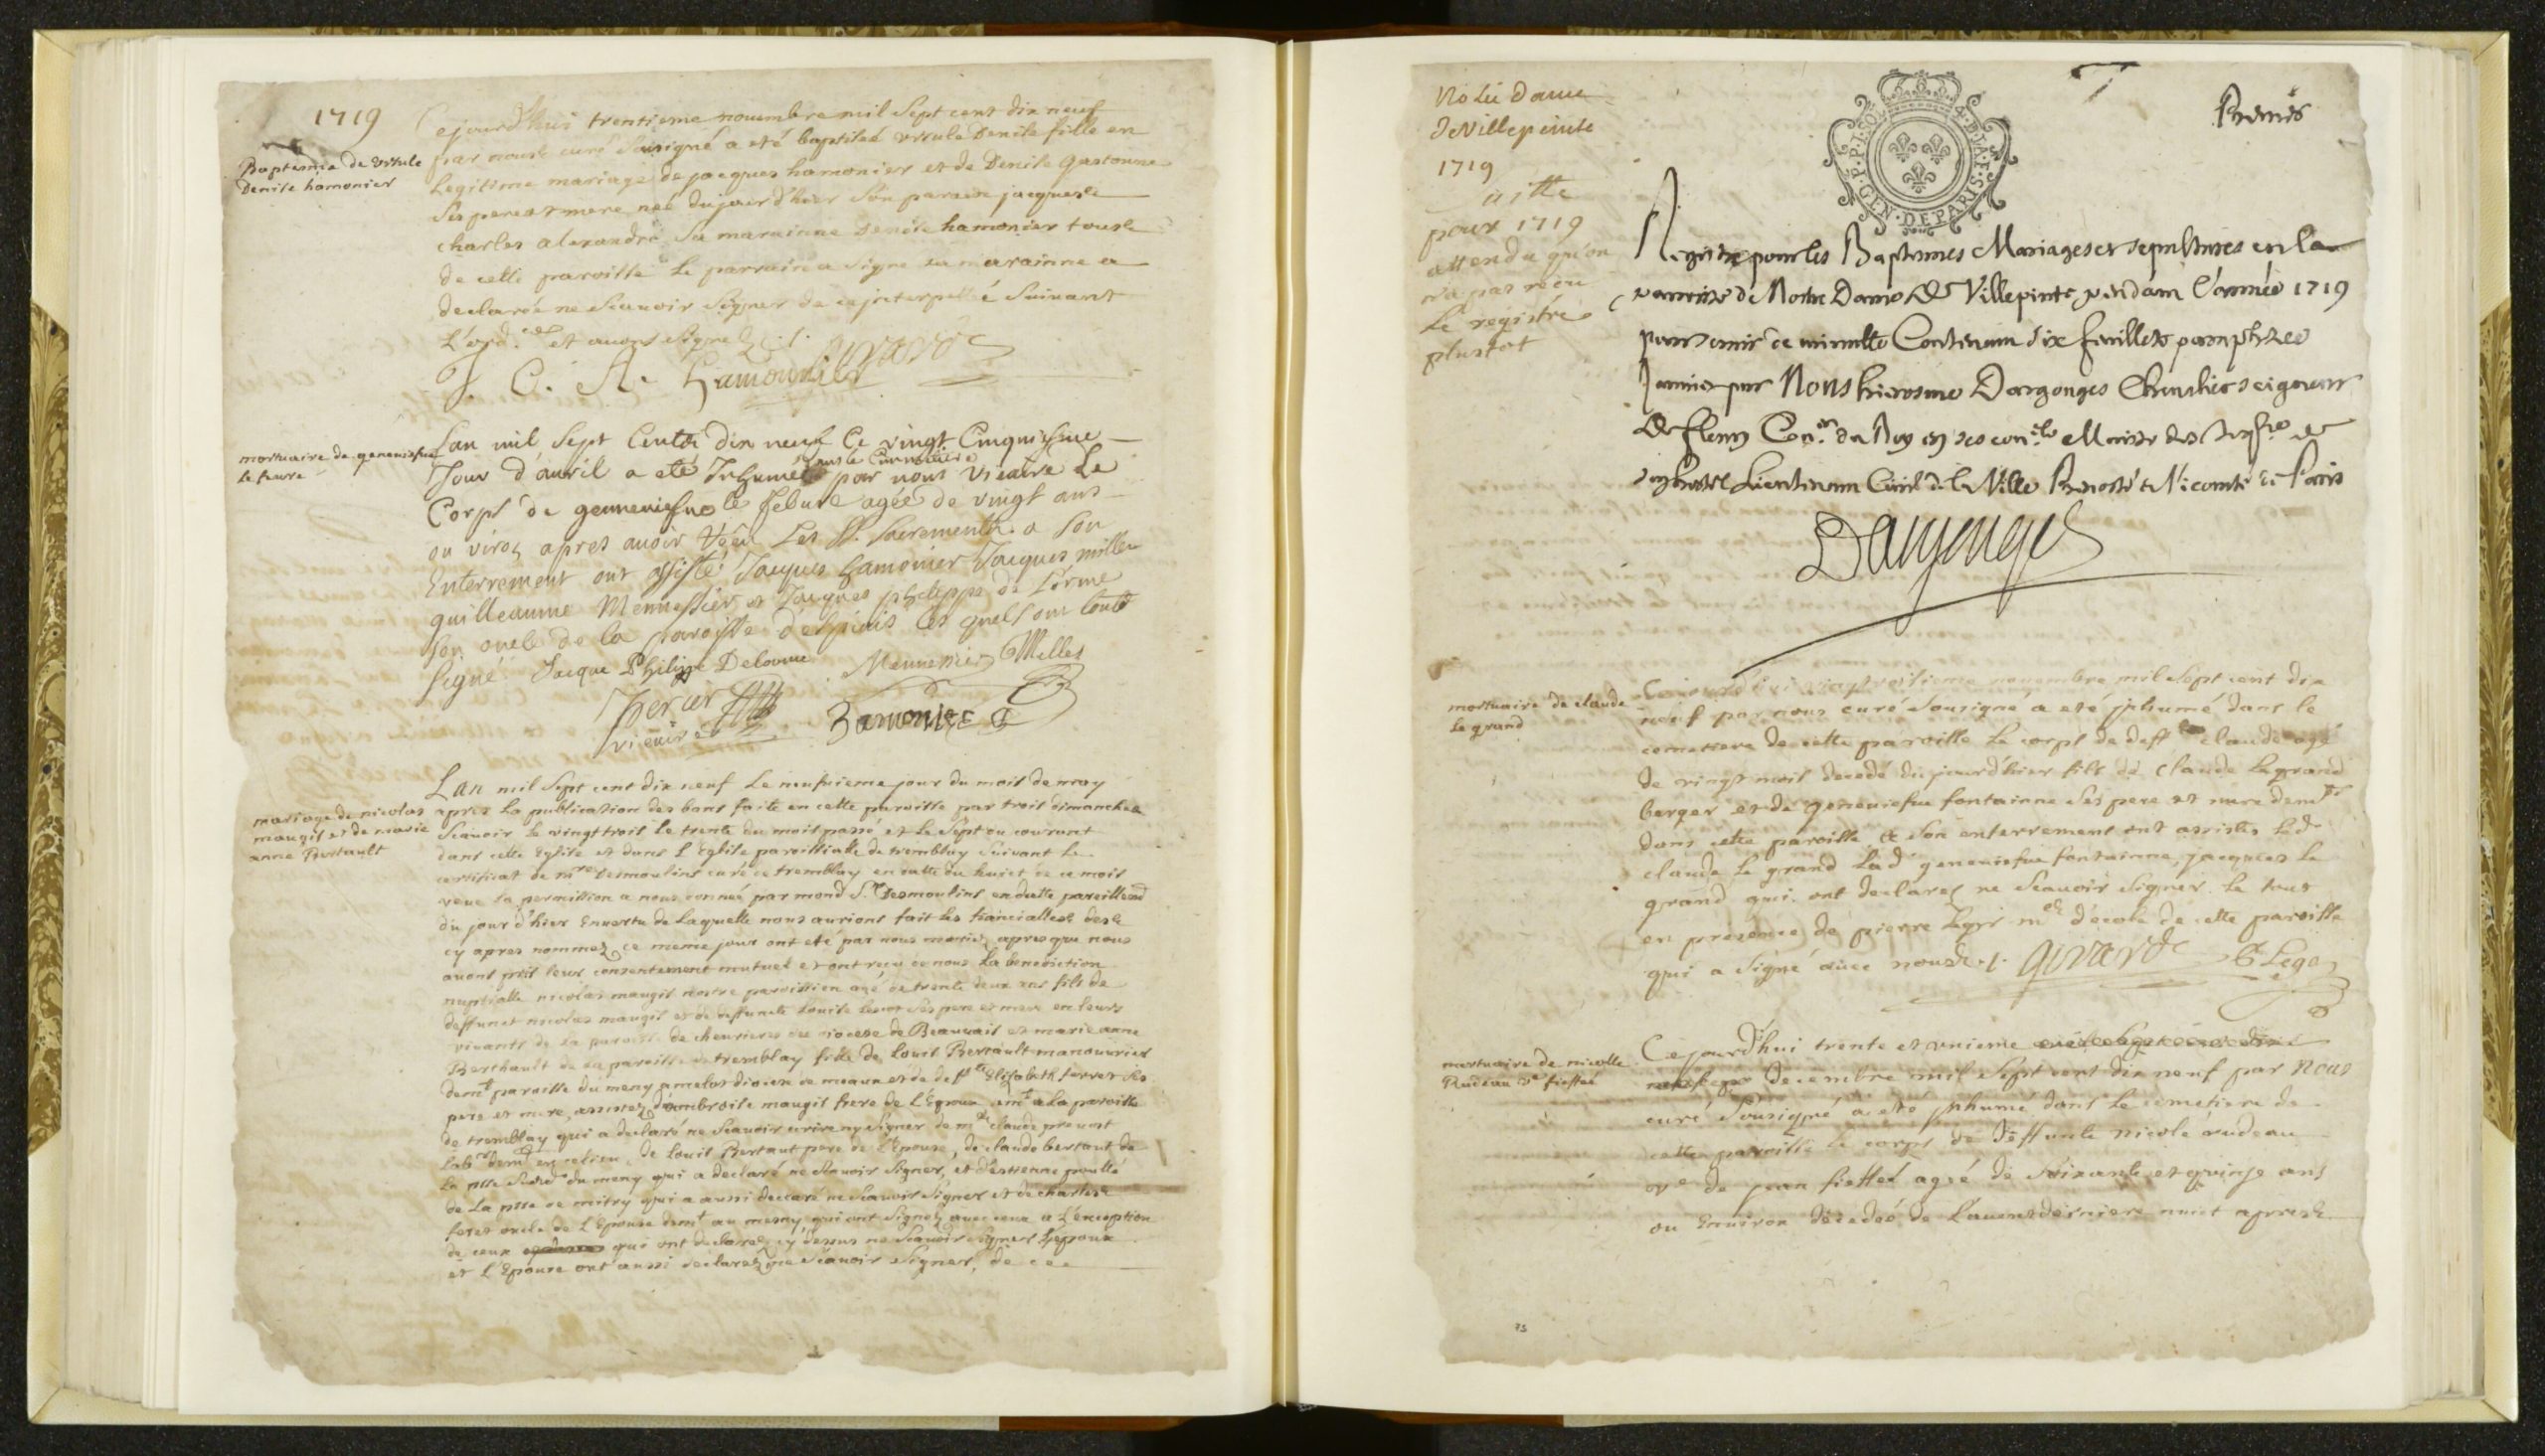 1719
Baptesme de ursule
Denise hamonier
Cejourd'hui trentieme nouembre mil Sept cent dix neuf
par nous curé Sousigné a eté baptisée ursule Denise fille en
Legitime mariage de jacques hamonier et de Denise Gastonne
Ses pere et mere neé dujourd'hier Son parain jacques
charles alexandre Sa marainne Denise hamonier tous
de cette paroisse Le parrain a Signe La marainne a
declarée ne Scauoir Signer de ce jnterpellée Suiuant
L'ord. et auons Signez ./.
J. C. A. hamounier Girard
mortuaire de geneuiefue
le feure
Lan mil Sept Cents Dix neuf Ce vingt Cinquiesme
Jour d'auril a eté Inhumée dans le Cimetiere par nous vicaire Le
Corps de genneuiefue le febure agée de vingt ans
ou viron apres auoir reçu Les SS. Sacrements a Son
Enterrement ont assisté Jacques hamonier Jacques milles
guilleaume Mennessier et Jacques phelippe de Lorme
Son oncle de la paroisse d'espiais les quels ont touts
signé Jacque Philippe Delorme Mennessier Milles
Thercier
vicaire hamonier
mariage de nicolas
maugis et de marie
anne Bertault
Lan mil Sept cent dix neuf Le neufuieme jour du mois de may
apres La publication des bans faite en cette paroisse par trois dimanches
Scauoir le vingt trois le trente du mois passé et Le Sept du courant
dans cette Eglise et dans l'Eglise paroissialle de tremblay Suivant Le
certificat de mre Desmoulins curé de tremblay en datte du huict de ce mois
veue la permission a nous donnée par mond Sr. Desmoulins en datte pareillemt
du jour d'hier Envertu de Laquelle nous aurions fait les fiancialles des
cy apres nommez ce meme jour ont eté par nous mariez apres que nous
auons pris leur consentement mutuel et ont reçu de nous La benediction
nuptialle nicolas maugis nostre paroissien agé de trente deux ans fils de
deffunct nicolas maugis et de deffuncte Louise Ses pere et mere en leurs
viuants de La paroisse de cheurieres du diocese de Beauuais et marie anne
Berthault de La paroisse de tremblay fille de Louis Bertault manouurier
demt paroisse du meny amelot diocese de meaux et de deffte Elizabeth ferret Ses
pere et mere, assistez d'ambroise maugis frere de L'Epoux demt a La paroisse
de tremblay qui a declaré ne Scauoir ecrire ny Signer de me claude preuost
Labr demt en ce lieu, de Louis Bertaut pere de L'Epouse, de claude bertaut de
La psse Sud. du meny qui a declaré ne Scauoir Signer, et d'estienne poullé
de La psse de mitry qui a aussi declaré ne Scauoir Signer et de charles
feret oncle de L'Epouse demt au mesny qui ont Signez auec nous a L'exception
de ceux qui ont declarez cy dessus ne Scauoir Signer L'epoux
et L'Epouse ont aussi declarez ne Scauoir Signer, de ce
Notre dame
de Villepinte
1719
pour 1719
attendu qu'on
n'a pas reçu
Le registre
plustot
P.P.I.SOL 4.D.LA.F. GEN.DE PARIS
Premier
Registre pour les Baptesmes Mariages et sepultures en la
paroisse de Nostre Dame de Villepinte pendant l'année 1719
pour seruir de minutte Contenant six feuillets paraphez
premier par Nous hierosme Dargouges Cheualier seigneur
de fleury Coner. du Roy en ses conels Maistre des Requestes de
son hostel Lieutenant Ciuil de la Ville Preuosté et Vicomté de Paris
Dargouges
mortuaire de claude
Le grand
Cejourd'hui vingt troisieme nouembre mil Sept cent dix
neuf par nous curé Sousigné a eté jnhumé dans le
cemetiere de cette paroisse Le corps de defft claude agé
de vingt mois decedé du jourd'hier fils de claude Legrand
berger et de geneuiefue fontainne Ses pere et mere demts
dans cette paroisse a Son enterrement ont assistez Led.
claude Le grand Lad. geneuiefue fontainne, jacques le
grand qui ont declarez ne Scauoir Signer. Le tout
en presence de pierre Legr me d'ecole de cette paroisse
qui a Signé auec nous ./. Girard P Lege
mortuaire de nicolle
Rudeau ve fieffee
Cejourd'hui trente et unieme
decembre mil Sept cent dix neuf par Nous
curé Sousigné a eté jnhumé dans Le cemetiere de
cette paroisse Le corps de deffunte nicole rudeau
ve de jean fieffée agée de Soixante et quinze ans
ou Enuiron decedée de L'auant derniere nuict apres
75